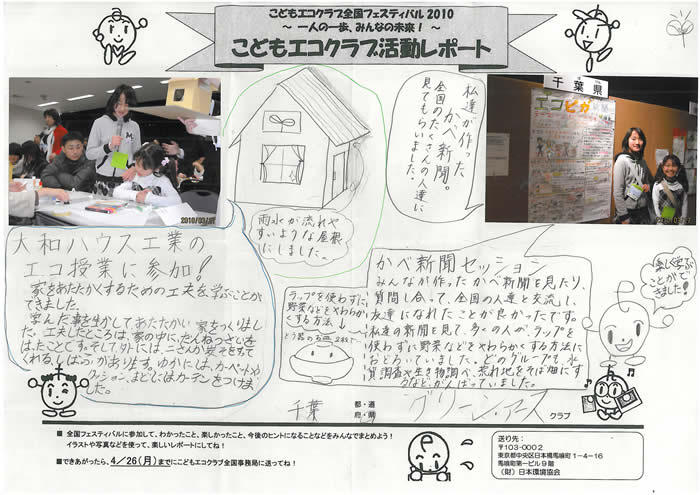 こどもエコクラブ全国フェスティバル2010
～ 一人の一歩、みんなの未来！ ～
こどもエコクラブ活動レポート
2010/03/
千葉県
エコピカ
2010/03/
私達が作った
かべ新聞。
全国のたくさんの人達に
見てもらいました。
雨水が流れや
すいような屋根
にしました。
大和ハウス工業の
エコ授業に参加！
家をあたたかくするための工夫を学ぶことが
できました。
学んだ事を生かしてあたたかい家をつくりまし
た。工夫したところは、家の中に、だんねつざいを
はったことです。そして、外には、二さんか炭そをすって
くれる、しばふがあります。ゆかには、カーペットや
クッション、まどにはカーテンをつけま
した。
ラップを使わずに
野菜などをやわらか
くする方法↓
かべ新聞セッション
みんなが作ったかべ新聞を見たり、
質問し合って、全国の人達と交流し、
友達になれたことが良かったです。
私達の新聞を見て、多くの人が、ラップを
使わずに野菜などをやわらかくする方法に
おどろいていました。どのグループも、水
質調査や生き物調べ、荒れ地をそば畑にす
るなど、がんばっていました。
楽しく学ぶ
ことがで
きました！
千葉 都・道 府・県 グリーン・アース クラブ
■ 全国フェスティバルに参加して、わかったこと、楽しかったこと、今後のヒントになることなどをみんなでまとめよう！
イラストや写真などを使って、楽しいレポートにしてね！
■できあがったら、4／26（月）までにこどもエコクラブ全国事務局に送ってね！
送り先：
〒103-0002
東京都中央区日本橋馬喰町1-4-16
馬喰町第一ビル9階
（財）日本環境協会